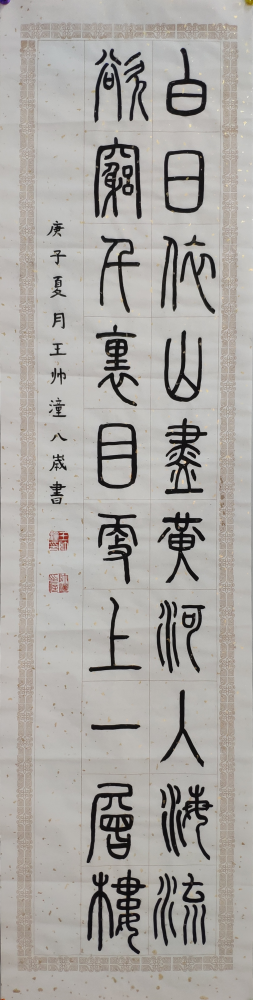 白日依山盡黃河入海流
欲窮千裏目更上一層樓
庚子夏月王帅潼八歲書